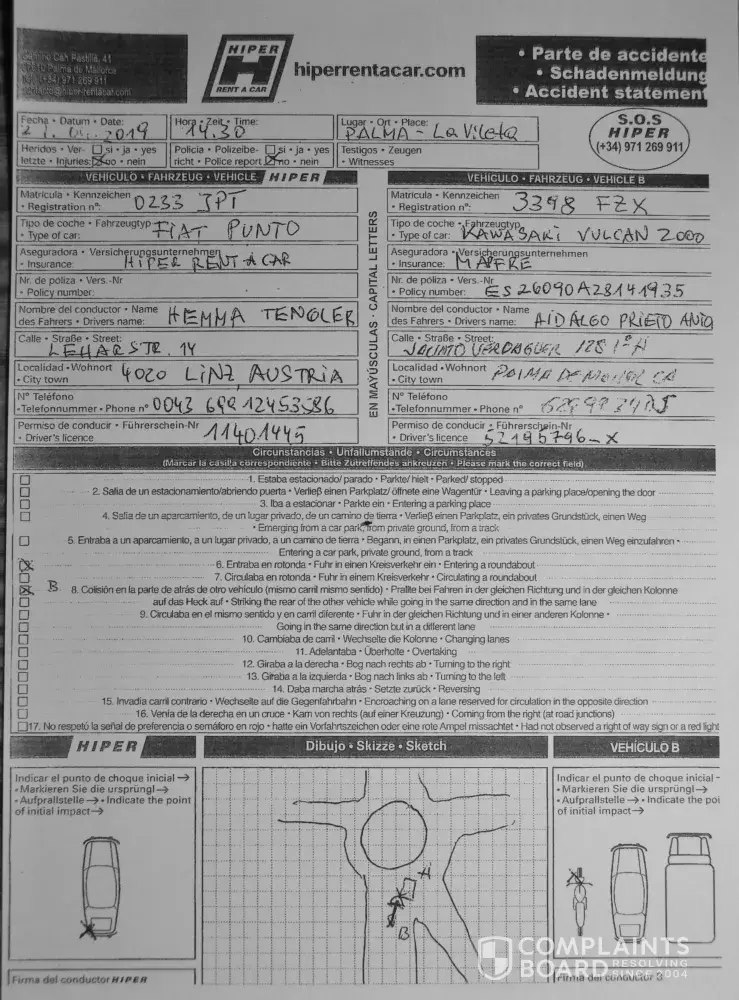 Camino Can Pastilla, 41
07610 Palma de Mallorca
(+34) 971 269 911
contacto@hiper-rentacar.com
HIPER
RENT A CAR
hiperrentacar.com
• Parte de accidente
• Schadenmeldung
• Accident statement
Fecha • Datum • Date:
2019
Hora • Zeit • Time:
14.30
Lugar • Ort • Place:
PALMA - La Vileta
S.O.S
HIPER
(+34) 971 269 911
Heridos • Ver- si • ja • yes
letzte • Injuries: no • nein
Policia • Polizeibe- si • ja • yes
richt • Police report no • nein
Testigos • Zeugen
• Witnesses
VEHÍCULO • FAHRZEUG • VEHICLE HIPER
VEHÍCULO • FAHRZEUG • VEHICLE B
Matrícula • Kennzeichen
• Registration nº: 0233 JPT
Tipo de coche • Fahrzeugtyp
• Type of car: FIAT PUNTO
Aseguradora • Versicherungsunternehmen
• Insurance: HIPER RENT A CAR
Nr. de póliza • Vers.-Nr
• Policy number:
Nombre del conductor • Name
des Fahrers • Drivers name: HEMMA TENGLER
Calle • Straße • Street:
LEHARSTR. 14
Localidad • Wohnort
• City town 4020 LINZ, AUSTRIA
Nº Teléfono
• Telefonnummer • Phone nº 0043 690 12453586
Permiso de conducir • Führerschein-Nr
• Driver's licence 11401445
EN MAYÚSCULAS • CAPITAL LETTERS
Matricula • Kennzeichen
• Registration nº: 3398 FZX
Tipo de coche • Fahrzeugtyp
• Type of car: KAWASAKI VULCAN 2000
Aseguradora • Versicherungsunternehmen
• Insurance: MAPFRE
Nr. de póliza • Vers.-Nr
• Policy number: ES26090A28141935
Nombre del conductor • Name
des Fahrers • Drivers name: HIDALGO PRIETO ANTO
Calle • Straße • Street:
JACINTO VERDAGUER 128 1º A
Localidad • Wohnort
• City town PALMA DE MALLORCA
Nº Teléfono
• Telefonnummer • Phone nº
Permiso de conducir • Führerschein-Nr
• Driver's licence 52195796-X
Circunstancias • Unfallumstände • Circumstances
(Marcar la casilla correspondiente • Bitte Zutreffendes ankreuzen • Please mark the correct field).
1. Estaba estacionado/ parado • Parkte/ hielt • Parked/ stopped
2. Salia de un estacionamiento/abriendo puerta • Verließ einen Parkplatz/ öffnete eine Wagentür • Leaving a parking place/opening the door
3. Iba a estacionar • Parkte ein • Entering a parking place
4. Salía de un aparcamiento, de un lugar privado, de un camino de tierra • Verließ einen Parkplatz, ein privates Grundstück, einen Weg
• Emerging from a car park, from private ground, from a track
5. Entraba a un aparcamiento, a un lugar privado, a un camino de tierra • Begann, in einen Parkplatz, ein privates Grundstück, einen Weg einzufahren •
Entering a car park, private ground, from a track
6. Entraba en rotonda • Fuhr in einen Kreisverkehr ein • Entering a roundabout
7. Circulaba en rotonda • Fuhr in einem Kreisverkehr • Circulating a roundabout
B 8. Colisión en la parte de atrás de otro vehículo (mismo carril mismo sentido) • Prallte bei Fahren in der gleichen Richtung und in der gleichen Kolonne
auf das Heck auf • Striking the rear of the other vehicle while going in the same direction and in the same lane
9. Circulaba en el mismo sentido y en carril diferente • Fuhr in der gleichen Richtung und in einer anderen Kolonne •
Going in the same direction but in a different lane
10. Cambiaba de carril • Wechselte die Kolonne • Changing lanes
11. Adelantaba • Überholte • Overtaking
12. Giraba a la derecha • Bog nach rechts ab • Turning to the right
13. Giraba a la izquierda • Bog nach links ab • Turning to the left
14. Daba marcha atrás • Setzte zurück • Reversing
15. Invadía carril contrario • Wechselte auf die Gegenfahrbahn • Encroaching on a lane reserved for circulation in the opposite direction
16. Venía de la derecha en un cruce • Kam von rechts (auf einer Kreuzung) • Coming from the right (at road junctions)
17. No respetó la señal de preferencia o semáforo en rojo • hatte ein Vorfahrtszeichen oder eine rote Ampel missachtet • Had not observed a right of way sign or a red light
HIPER
Dibujo • Skizze • Sketch
VEHÍCULO B
Indicar el punto de choque inicial →
• Markieren Sie die ursprüngl →
• Aufprallstelle → • Indicate the point
of initial impact →
A
B
Indicar el punto de choque inicial -
• Markieren Sie die ursprüngl →
• Aufprallstelle → • Indicate the poi
of initial impact →
COMPLAINTS
BOARD RESOLVING
SINCE 2004
Firma del conductor HIPER
Firma del conductor B